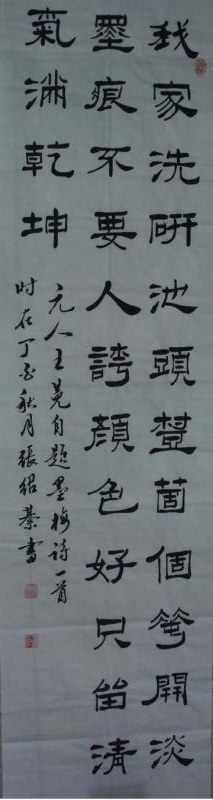 我家洗研池頭樹箇個華開淡
墨痕不要人誇顏色好只留清
氣滿乾坤
元人王冕自題墨梅詩一首
时在丁秋月張紹書